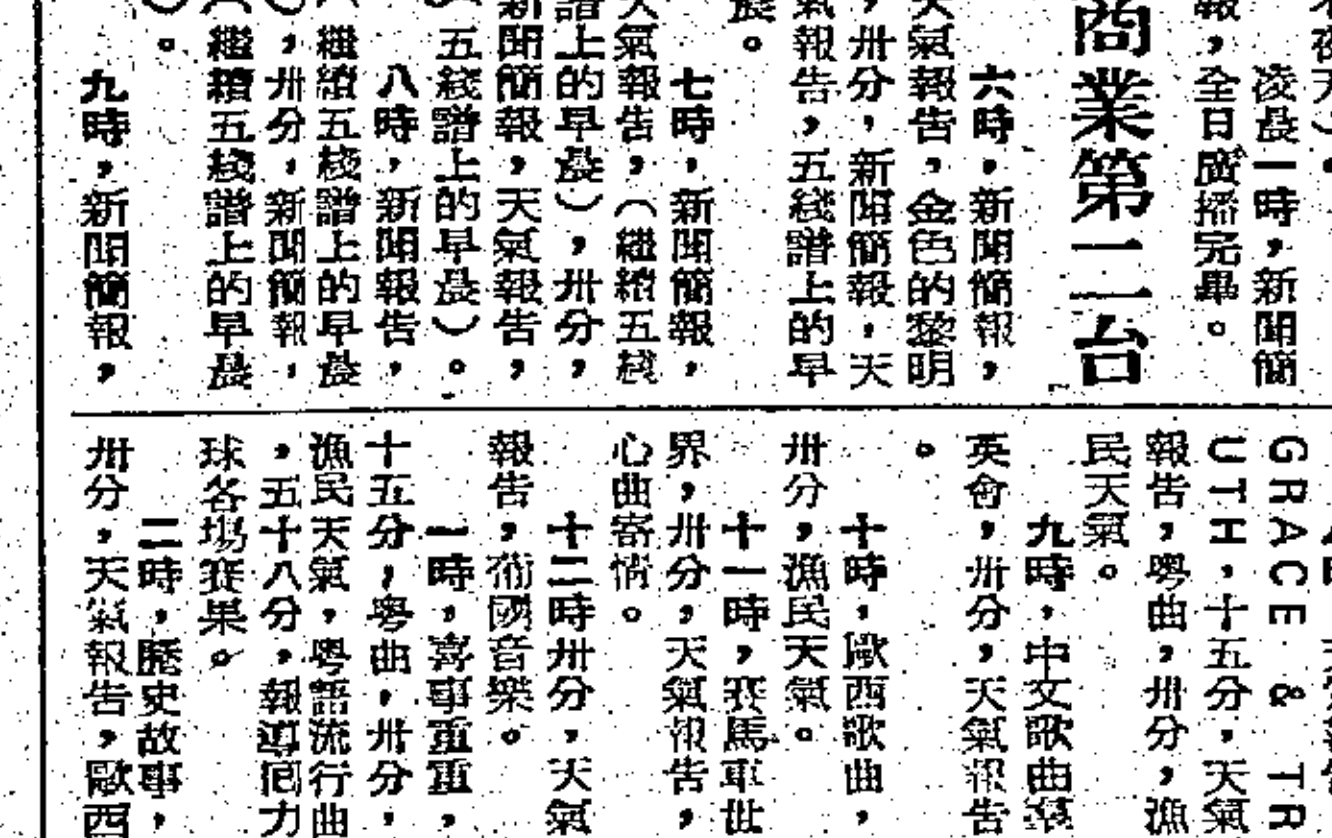 夜天）。
凌晨一時，新聞簡
報，全日廣播完畢。
商業第二台
六時，新聞簡報，
天氣報告，金色的黎明
，卅分，新聞簡報，天
氣報告，五綫譜上的早
晨。
七時，新聞簡報，
天氣報告，（繼續五綫
譜上的早晨），卅分，
新聞簡報，天氣報告，
（五綫譜上的早晨）。
八時，新聞報告，
（繼續五綫譜上的早晨
），卅分，新聞簡報，
（繼續五綫譜上的早晨
）。
九時，新聞簡報，
GRACE & TR
UTH，十五分，天氣
報告，粵曲，卅分，漁
民天氣。
九時，中文歌曲羣
英會，卅分，天氣報告
。
十時，歐西歌曲，
卅分，漁民天氣。
十一時，賽馬車世
界，卅分，天氣報告，
心曲寄情。
十二時卅分，天氣
報告，葡國音樂。
一時，喜事重重，
十五分，粵曲，卅分，
漁民天氣，粵語流行曲
，五十八分，報導回力
球各場賽果。
二時，歷史故事，
卅分，天氣報告，歐西